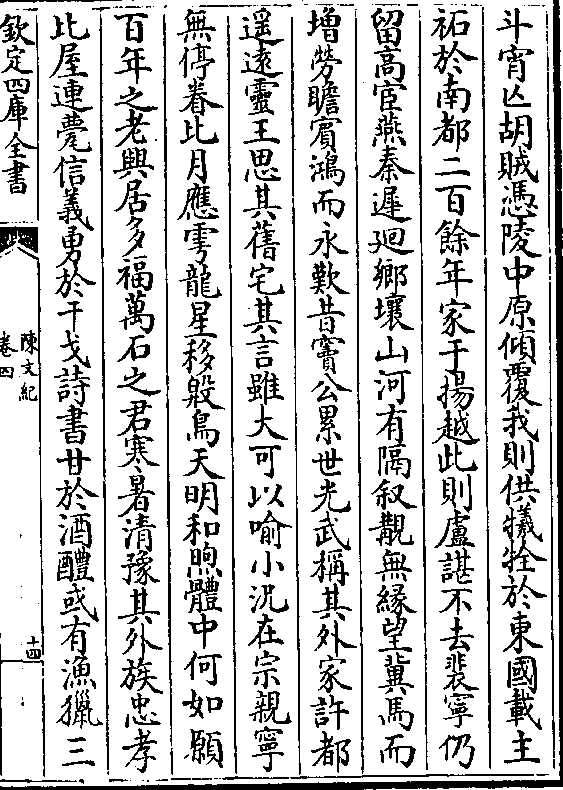 斗宵亾胡賊憑陵中原傾覆我則供犧牲於東國載主
祏於南都二百餘年家于揚越此則盧諶不去裴寧仍
留高宦燕秦遲迴鄉壤山河有隔叙覯無緣望冀馬而
増勞瞻賓鴻而永歎昔竇公累世光武稱其外家許都
遥逺靈王思其舊宅其言雖大可以喻小況在宗親寧
無停眷比月應雩龍星移殷鳥天明和煦體中何如願
百年之老興居多福萬石之君寒暑清豫其外族忠孝
比屋連甍信義勇於干戈詩書甘於酒醴或有漁獵三
欽定四庫全書
陳文紀
卷四
十四